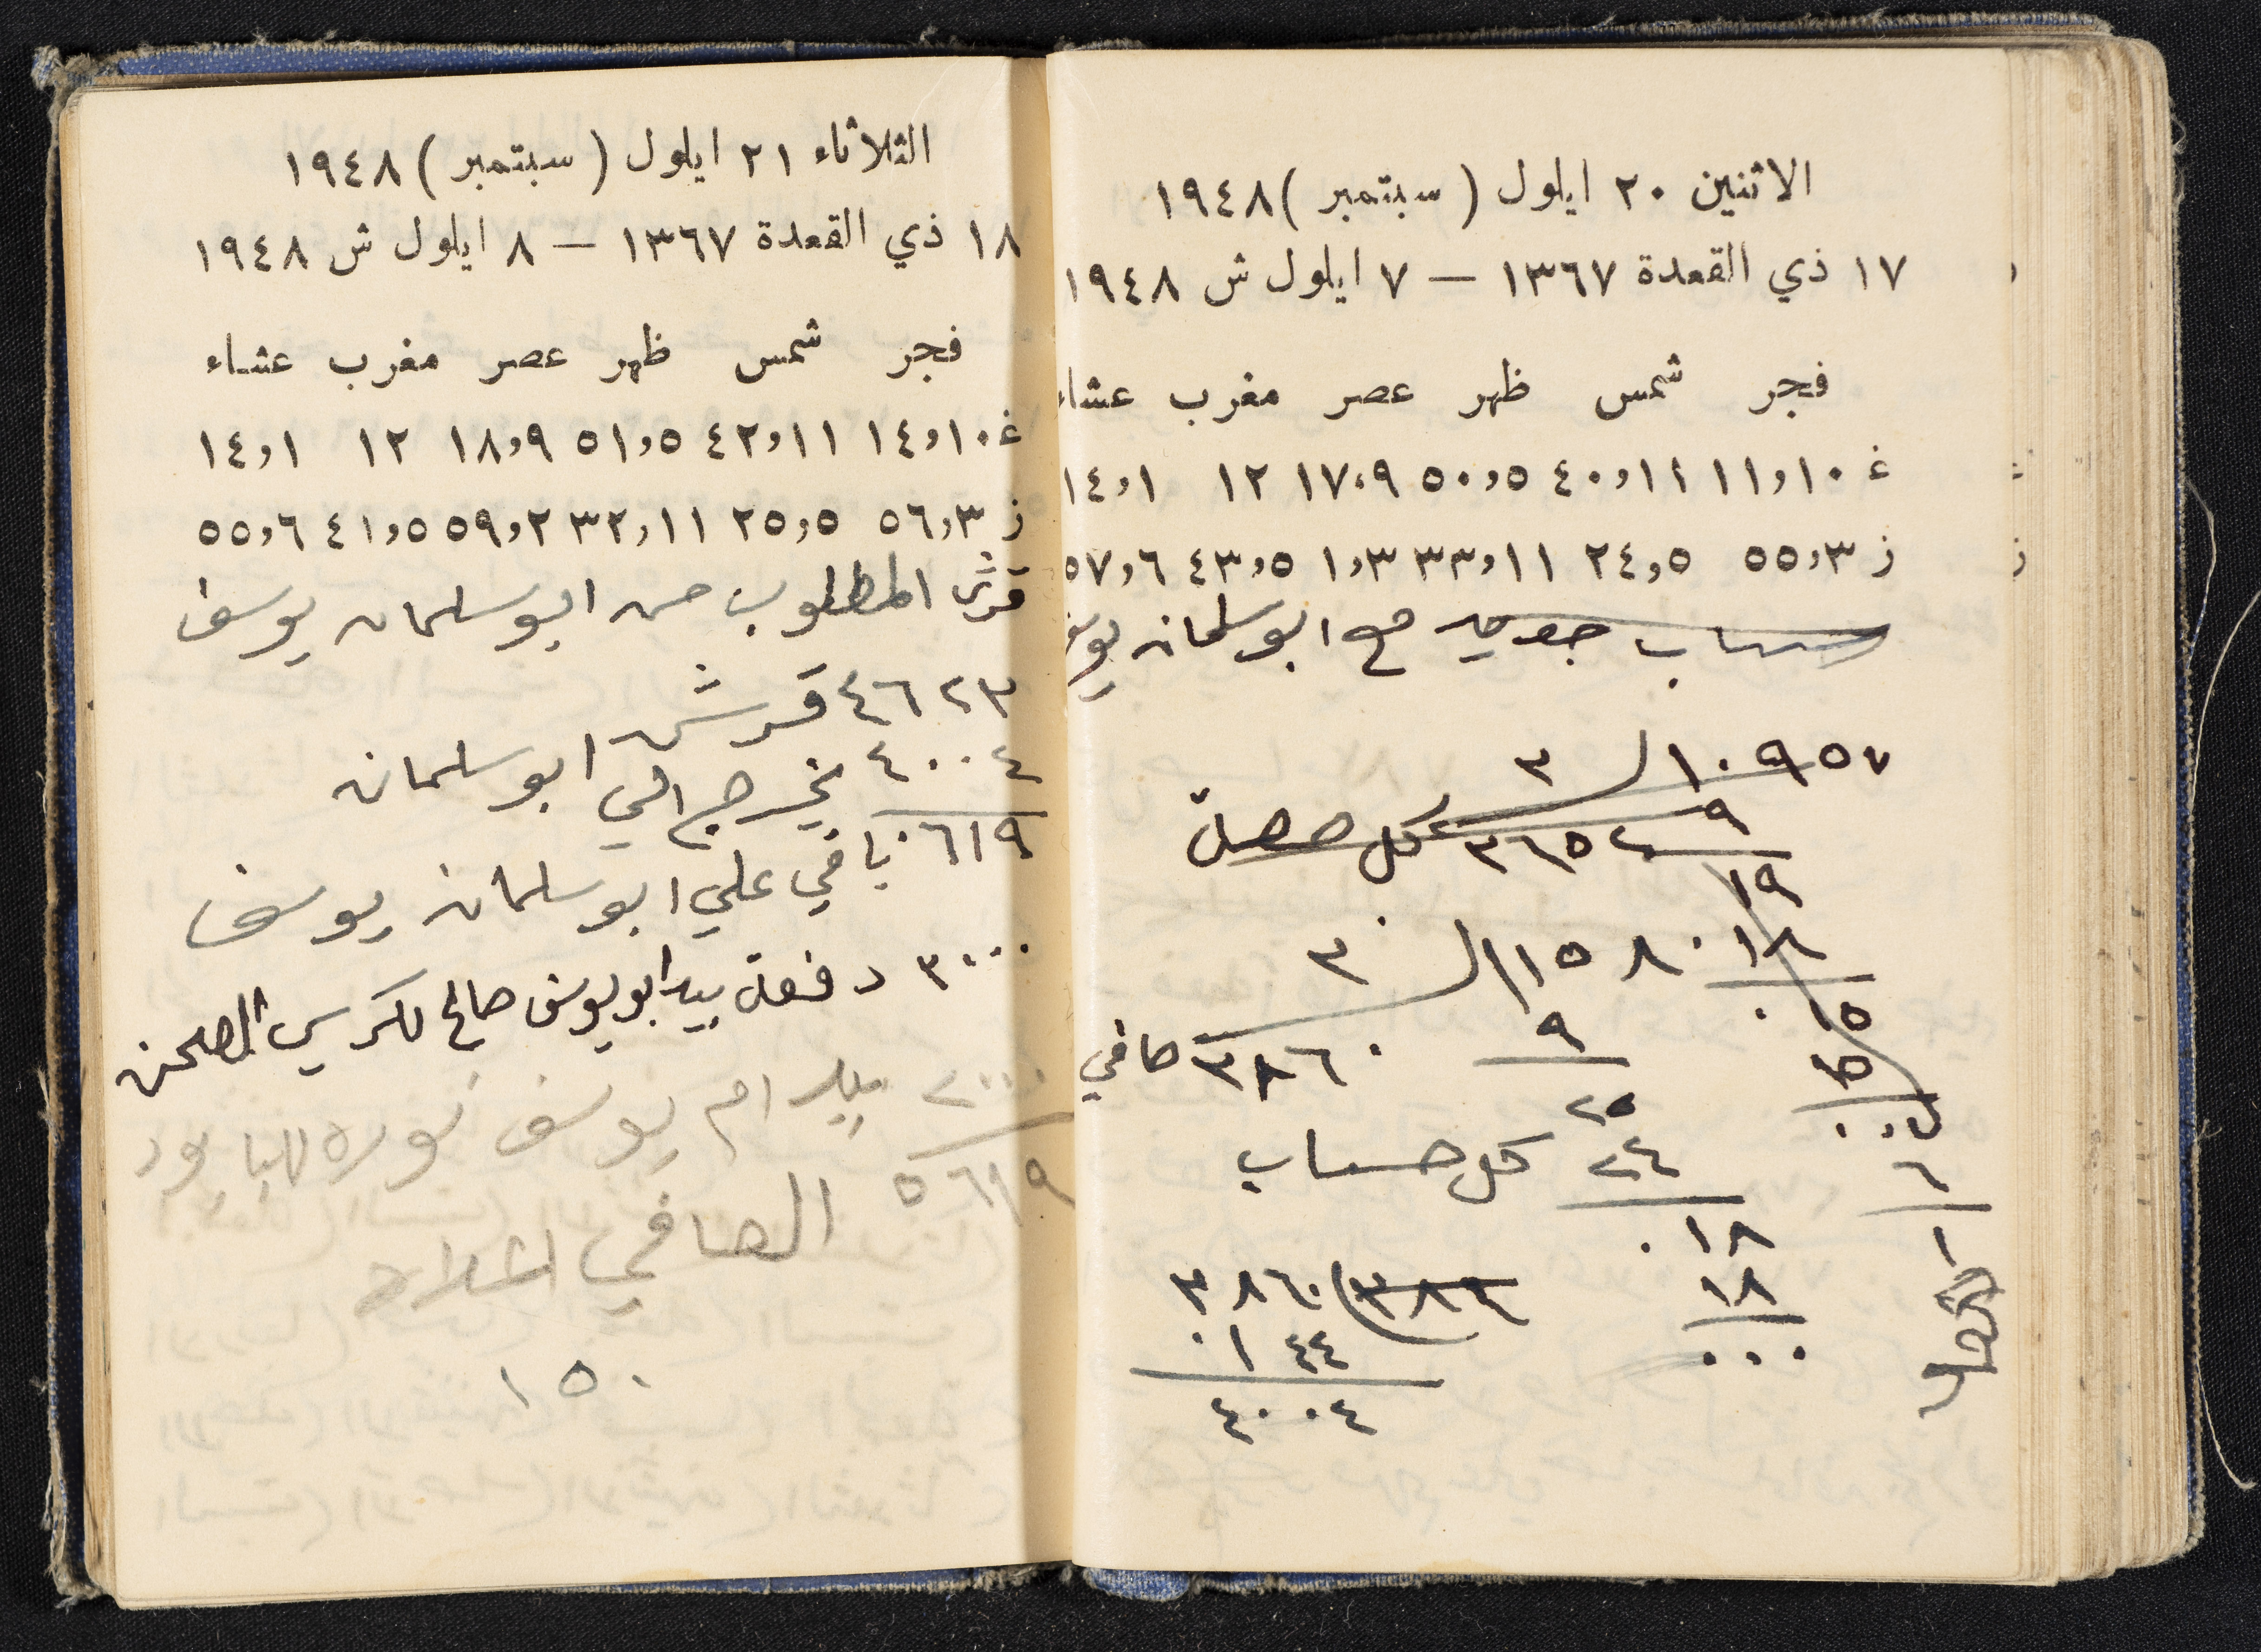 الاثنين ٢٠ ايلول ( سبتمبر ) ١٩٤٨
١٧ ذي القعدة ١٣٦٧ — ٧ ايلول ش ١٩٤٨
فجر شمس ظهر عصر مغرب عشاء
غ ١٠و١١ ١١و٤٠ ٥و٥٠ ٩و١٧ ١٢ ١و١٤
ز ٣و٥٥ ٥و٢٤ ١١و٣٣ ٣و١ ٥و٤٣ ٦و٥٧
حساب مع ابو سلمان يوسف
١٠٩٥٧ ٣
٩ ٣٦٥٢ كل حصة
١٩
١٨
١١٥٨٠ ٣
١٥
٩ ٣٨٦٠ صافي
١٥
٢٥
٢٤ كل حساب
٦
١٨
١٨ ٣٨٦ ٣٨٦٠
٠٠٠ ٠١٤٤
٤٠٠٤
الثلاثاء ٢١ ايلول ( سبتمبر ) ١٩٤٨
١٨ ذي القعدة ١٣٦٧ — ٨ ايلول ش ١٩٤٨
فجر شمس ظهر عصر مغرب عشاء
غ ١٠و١٤ ١١و٤٢ ٥و٥١ ٩و١٨ ١٢ ١و١٤
ز ٣و٥٦ ٥و٢٥ ١١و٣٢ ٢و٥٩ ٥و٤١ ٦و٥٥
قرش المطلوب من ابو سلمان يوسف
٤٦٢٣ قرش
٤٠٠٤ يخرج الي ابو سلمان
٠٦١٩ باقي علي ابو سلمان يوسف
٣٠٠٠ دفعة بيد ابو يوسف صالح لكرسي الصحن
٢٠٠٠ بيد ام يوسف
٥٦١٩ الصافي
١٥٠